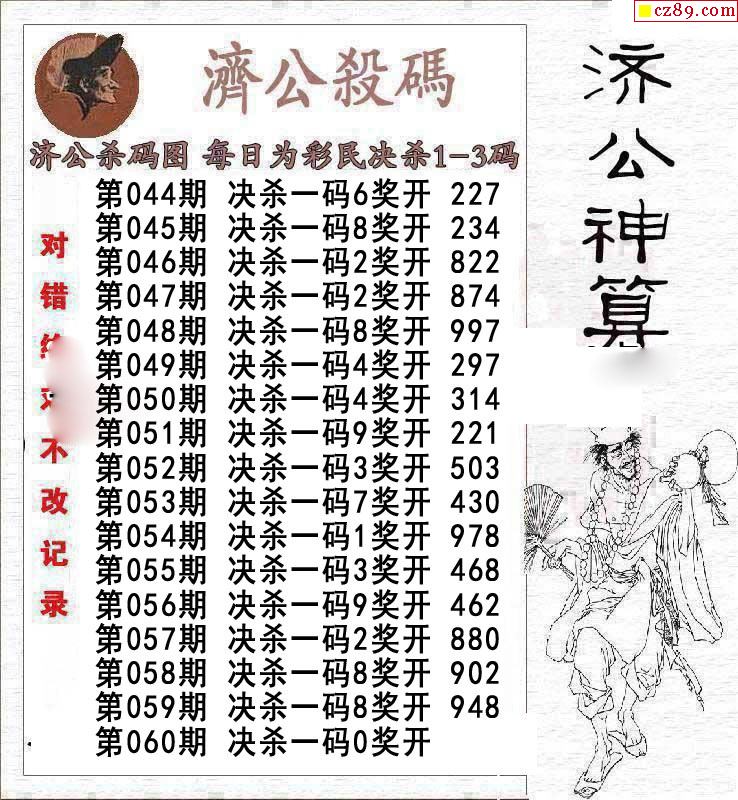 cz89.com
濟公殺碼
济公杀码图 每日为彩民决杀1-3码
第044期 决杀一码6奖开 227
第045期 决杀一码8奖开 234
第046期 决杀一码2奖开 822
第047期 决杀一码2奖开 874
第048期 决杀一码8奖开 997
第049期 决杀一码4奖开 297
第050期 决杀一码4奖开 314
第051期 决杀一码9奖开 221
第052期 决杀一码3奖开 503
第053期 决杀一码7奖开 430
第054期 决杀一码1奖开 978
第055期 决杀一码3奖开 468
第056期 决杀一码9奖开 462
第057期 决杀一码2奖开 880
第058期 决杀一码8奖开 902
第059期 决杀一码8奖开 948
第060期 决杀一码0奖开
对错不改记录
济公神算